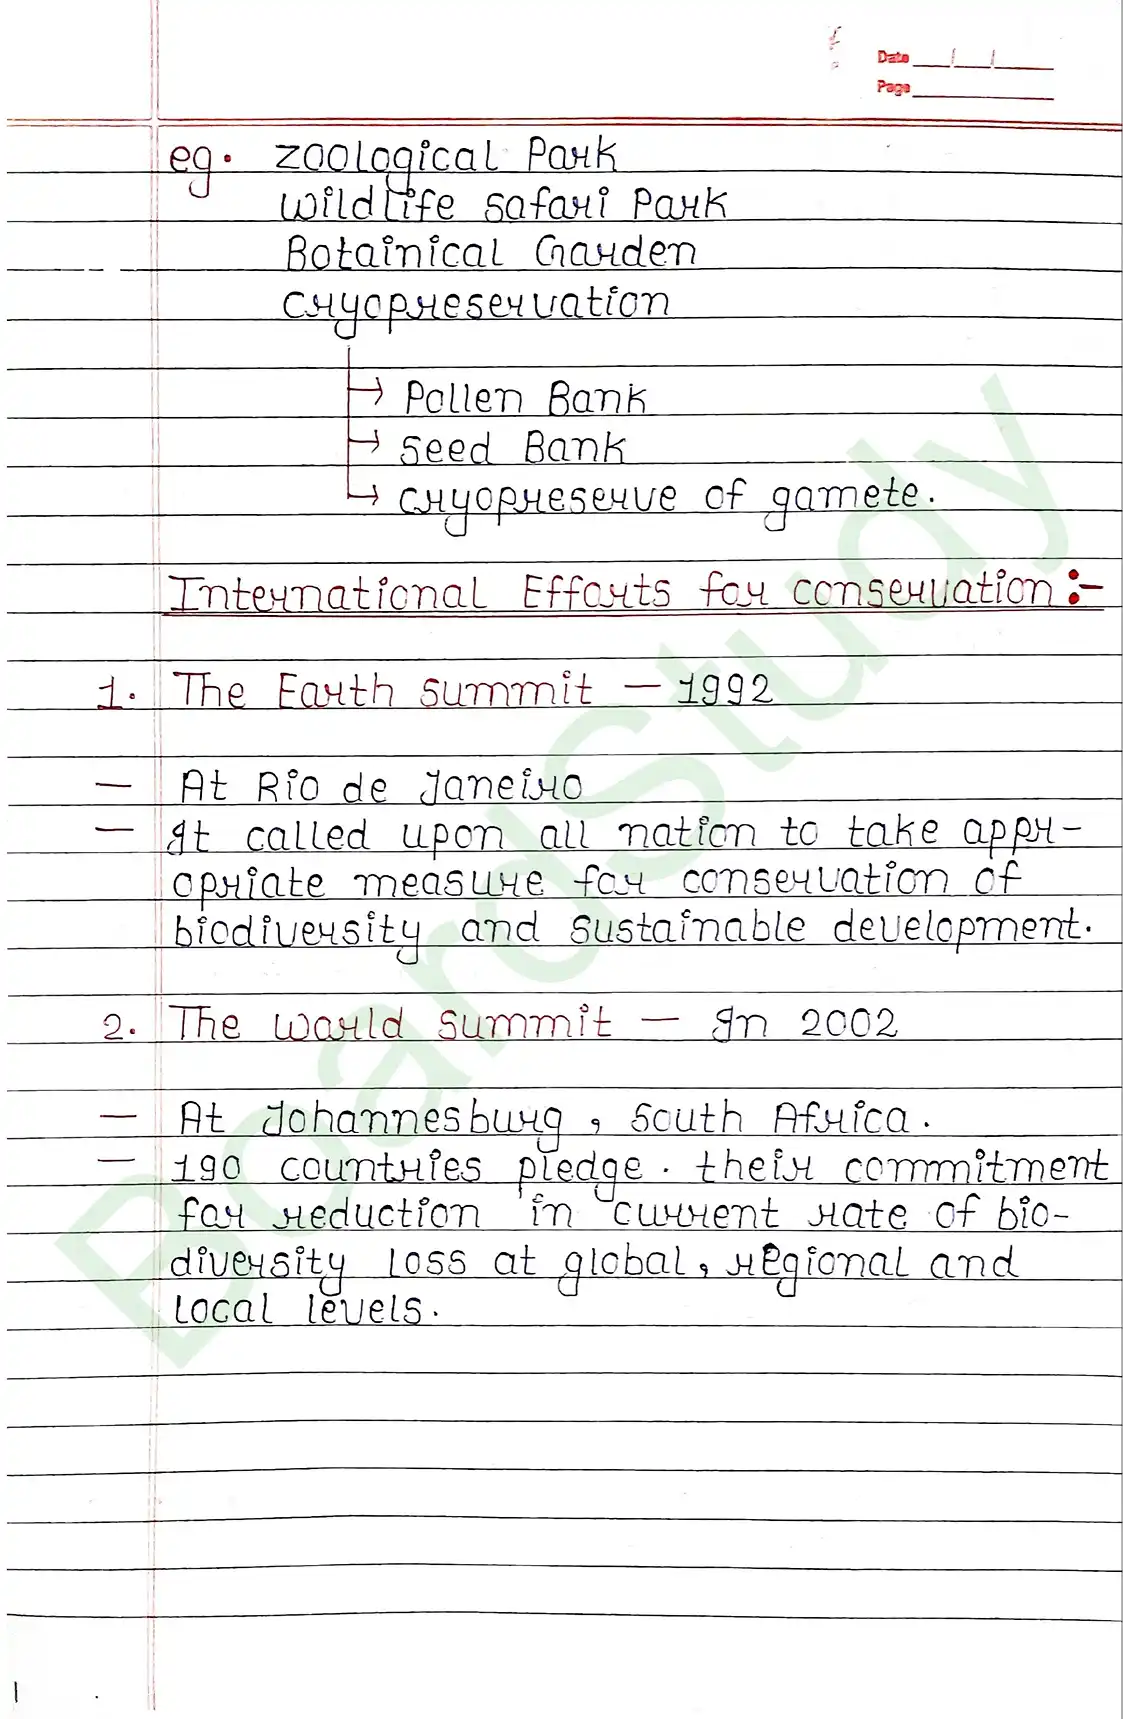 Date / /
Page
eg. Zoological Park
Wildlife Safari Park
Botainical Garden
Cryopreservation
→ Pollen Bank
→ Seed Bank
→ Cryopreserve of gamete.
International Efforts for conservation :-
1. The Earth Summit — 1992
— At Rio de Janeiro
— It called upon all nation to take appr-
opriate measure for conservation of
biodiversity and sustainable development.
2. The World Summit — In 2002
— At Johannesburg, South Africa.
— 190 countries pledge. their commitment
for reduction in current rate of bio-
diversity loss at global, regional and
local levels.
BoardStudy